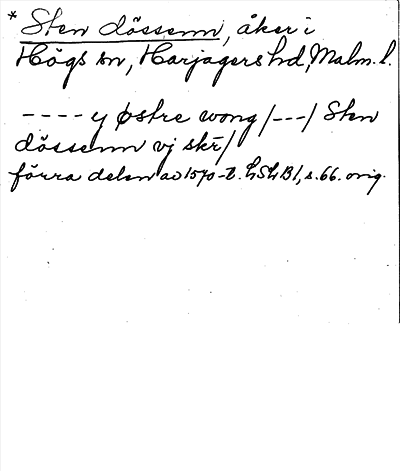 * Sten dössenn, åker i
Högs sn, Harjagers hd, Malm. l.
---- y østre wong /---/ Sten
dössenn vj skr/
förra delen av 1570-t. LSLB1, s. 66. orig.